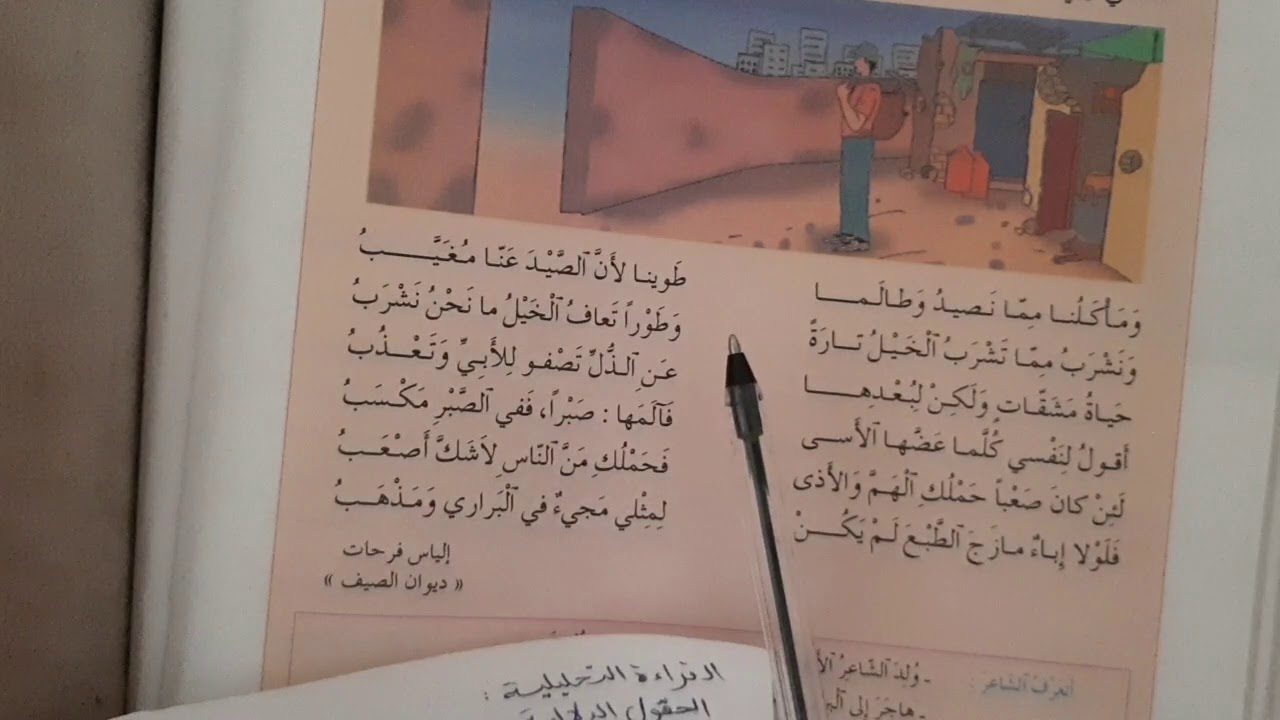 وَمَأْكَلُنا مِمّا نَصيدُ وَطالَمـــا طَوينا لأَنَّ ٱلصَّيْدَ عَنّا مُغَيَّـــبُ
وَنَشْرَبُ مِمّا تَشْرَبُ ٱلْخَيْلُ تـارَةً وَطَوْراً تَعافُ ٱلْخَيْلُ ما نَحْنُ نَشْرَبُ
حَياةُ مَشَقّاتٍ وَلَكِنْ لِبُعْدِهـــا عَنِ ٱلذُّلِّ تَصْفـو لِلأَبِيِّ وَتَعْـــذُبُ
أَقولُ لِنَفْسي كُلَّما عَضَّها ٱلأَسـى فَآلَمَها : صَبْراً، فَفي ٱلصَّبْرِ مَكْسَبُ
لَئِنْ كانَ صَعْباً حَمْلُكِ ٱلْهَمَّ وَالأَذى فَحَمْلُكِ مَنَّ ٱلنّاسِ لاَشَكَّ أَصْعَـبُ
فَلَوْلا إِباءٌ مـازَجَ ٱلطَّبْعَ لَمْ يَكُـــنْ لِمِثْلي مَجيءٌ في ٱلْبَراري وَمَذْهَـبُ
إلياس فرحات
« ديوان الصيف »
أَتَعَرَّفُ ٱلشّاعِرَ :
- وُلِدَ ٱلشّاعِرُ
- هاجَرَ إِلى
القراءة التحليلية :
الحقول الدلالية